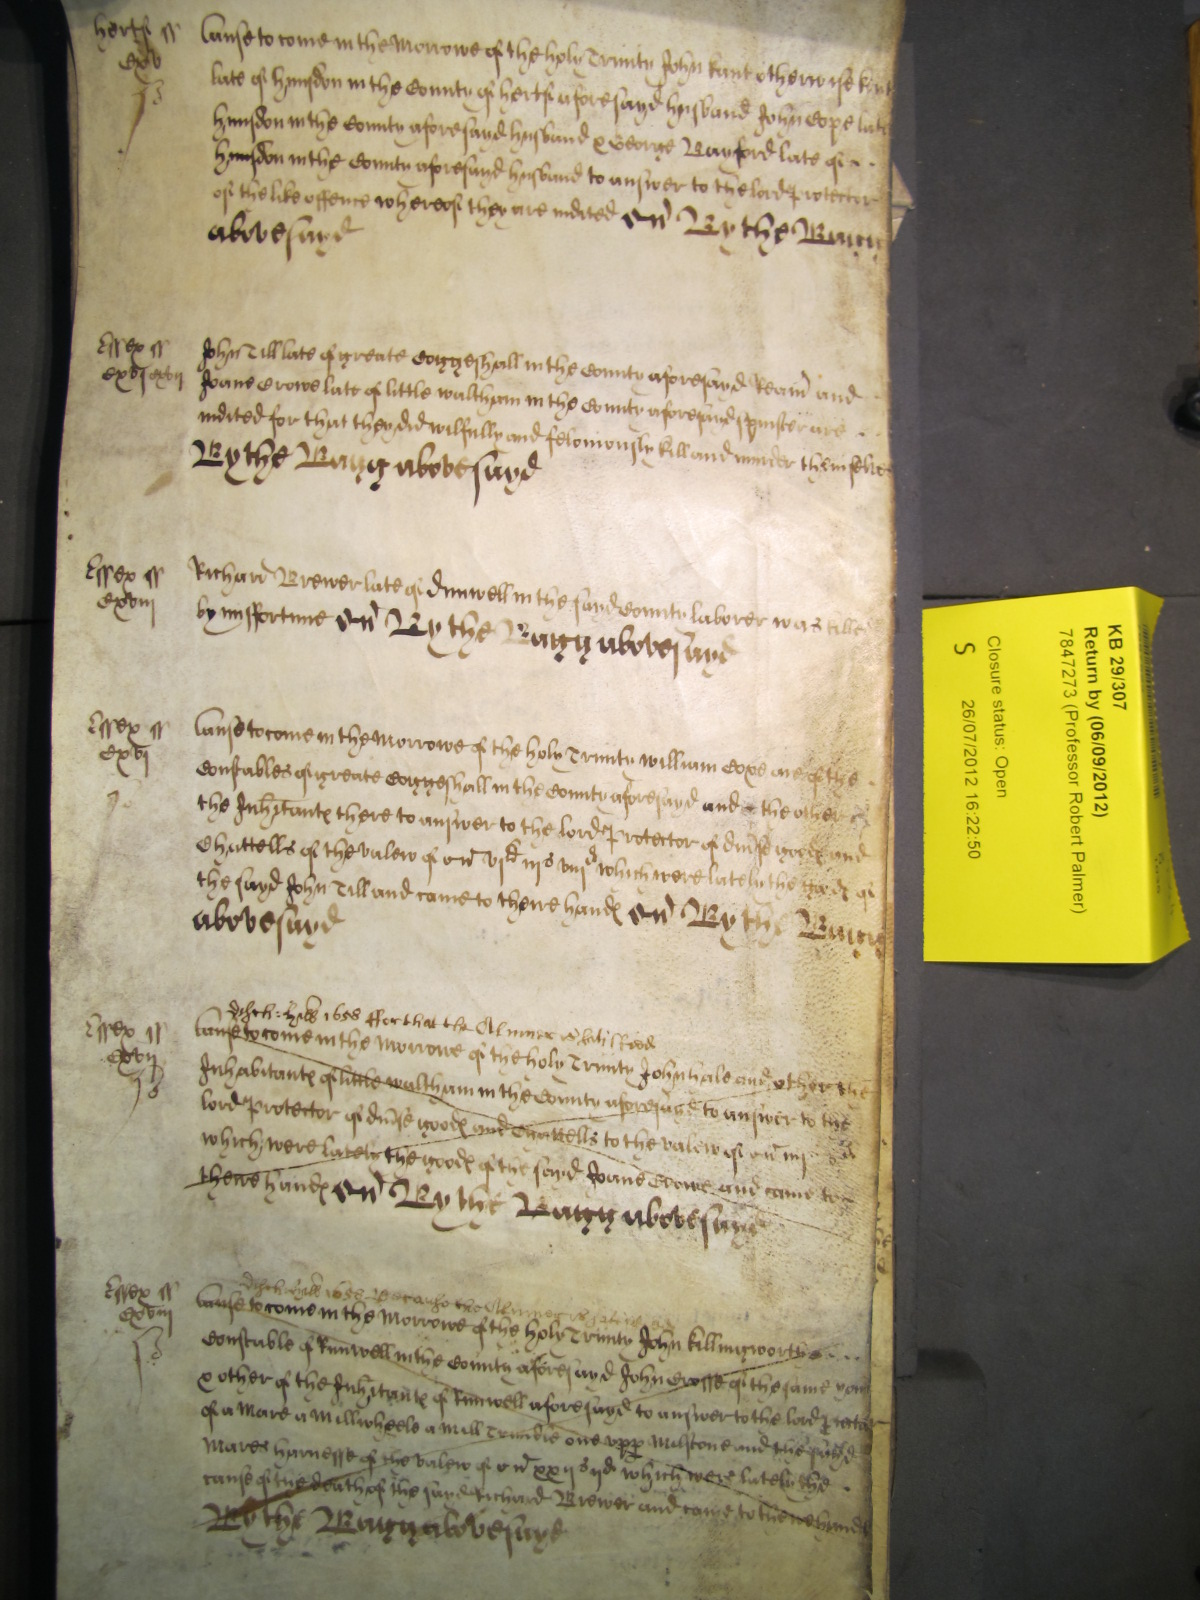 hertf ss Cause to come in the Morrowe of the holy Trinity John Kant otherwise Kent
cxv late of hunsdon in the County of hertf aforesayd husband John Cope late
hunsdon in the County aforesayd husband & George Bayford late of ..
hunsdon in the County aforesayd husband to answer to the lord Protector
of the like offence whereof they are indited By the Bagg
abovesayd
Essex ss John Till late of greate Coggeshall in the County aforesayd and
cxvi cxvii Joane Crowe late of little waltham in the County aforesayd spinster are ..
indited for that they did wilfully and feloniously kill and murder themselves
By the Bagg abovesayd
Essex ss Richard Brewer late of in the sayd County laborer was killed
cxviii by misfortune By the Bagg abovesayd
Essex ss Cause to come in the Morrowe of the holy Trinity william Cope one of the .
cxvi Constables of greate Coggeshall in the County aforesayd and the other
the Inhitants there to answer to the lord Protector of goods and
Chattells of the valew of which were lately the goods of
the sayd John Till and came to there hands By the Bagg
abovesayd
1658 ffor that the Almner
Essex ss Cause to come in the Morrowe of the holy Trinity John hale and other the
cxvii Inhabitants of little waltham in the County aforesayd to answer to the
lord Protector of goods and Chattells to the valew of
which were lately the goods of the sayd Joane Crowe and came to
there hands By the Bagg abovesayd
1658 Because the Almner
Essex ss Cause to come in the Morrowe of the holy Trinity John Killingworth ....
cxviii Constable of Runwell in the County aforesayd John Crosse of the same
& other of the Inhitants of Runwell aforesayd to answer to the lord Protector
of a Mare a Millwheele a Mill Trundle one upp Milstone and the sayd
Mares harnesse of the valew of which were lately the .
cause of the death of the sayd Richard Brewer and came to there hands
By the Bagg abovesayd
KB 29/307
Return by (06/09/2012)
7847273 (Professor Robert Palmer)
Closure status: Open
S 26/07/2012 16:22:50